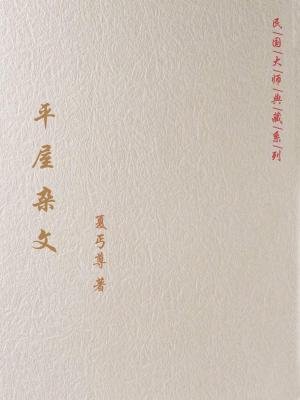 民/国/大/师/典/藏/系/列
平屋杂文
夏丏尊 著